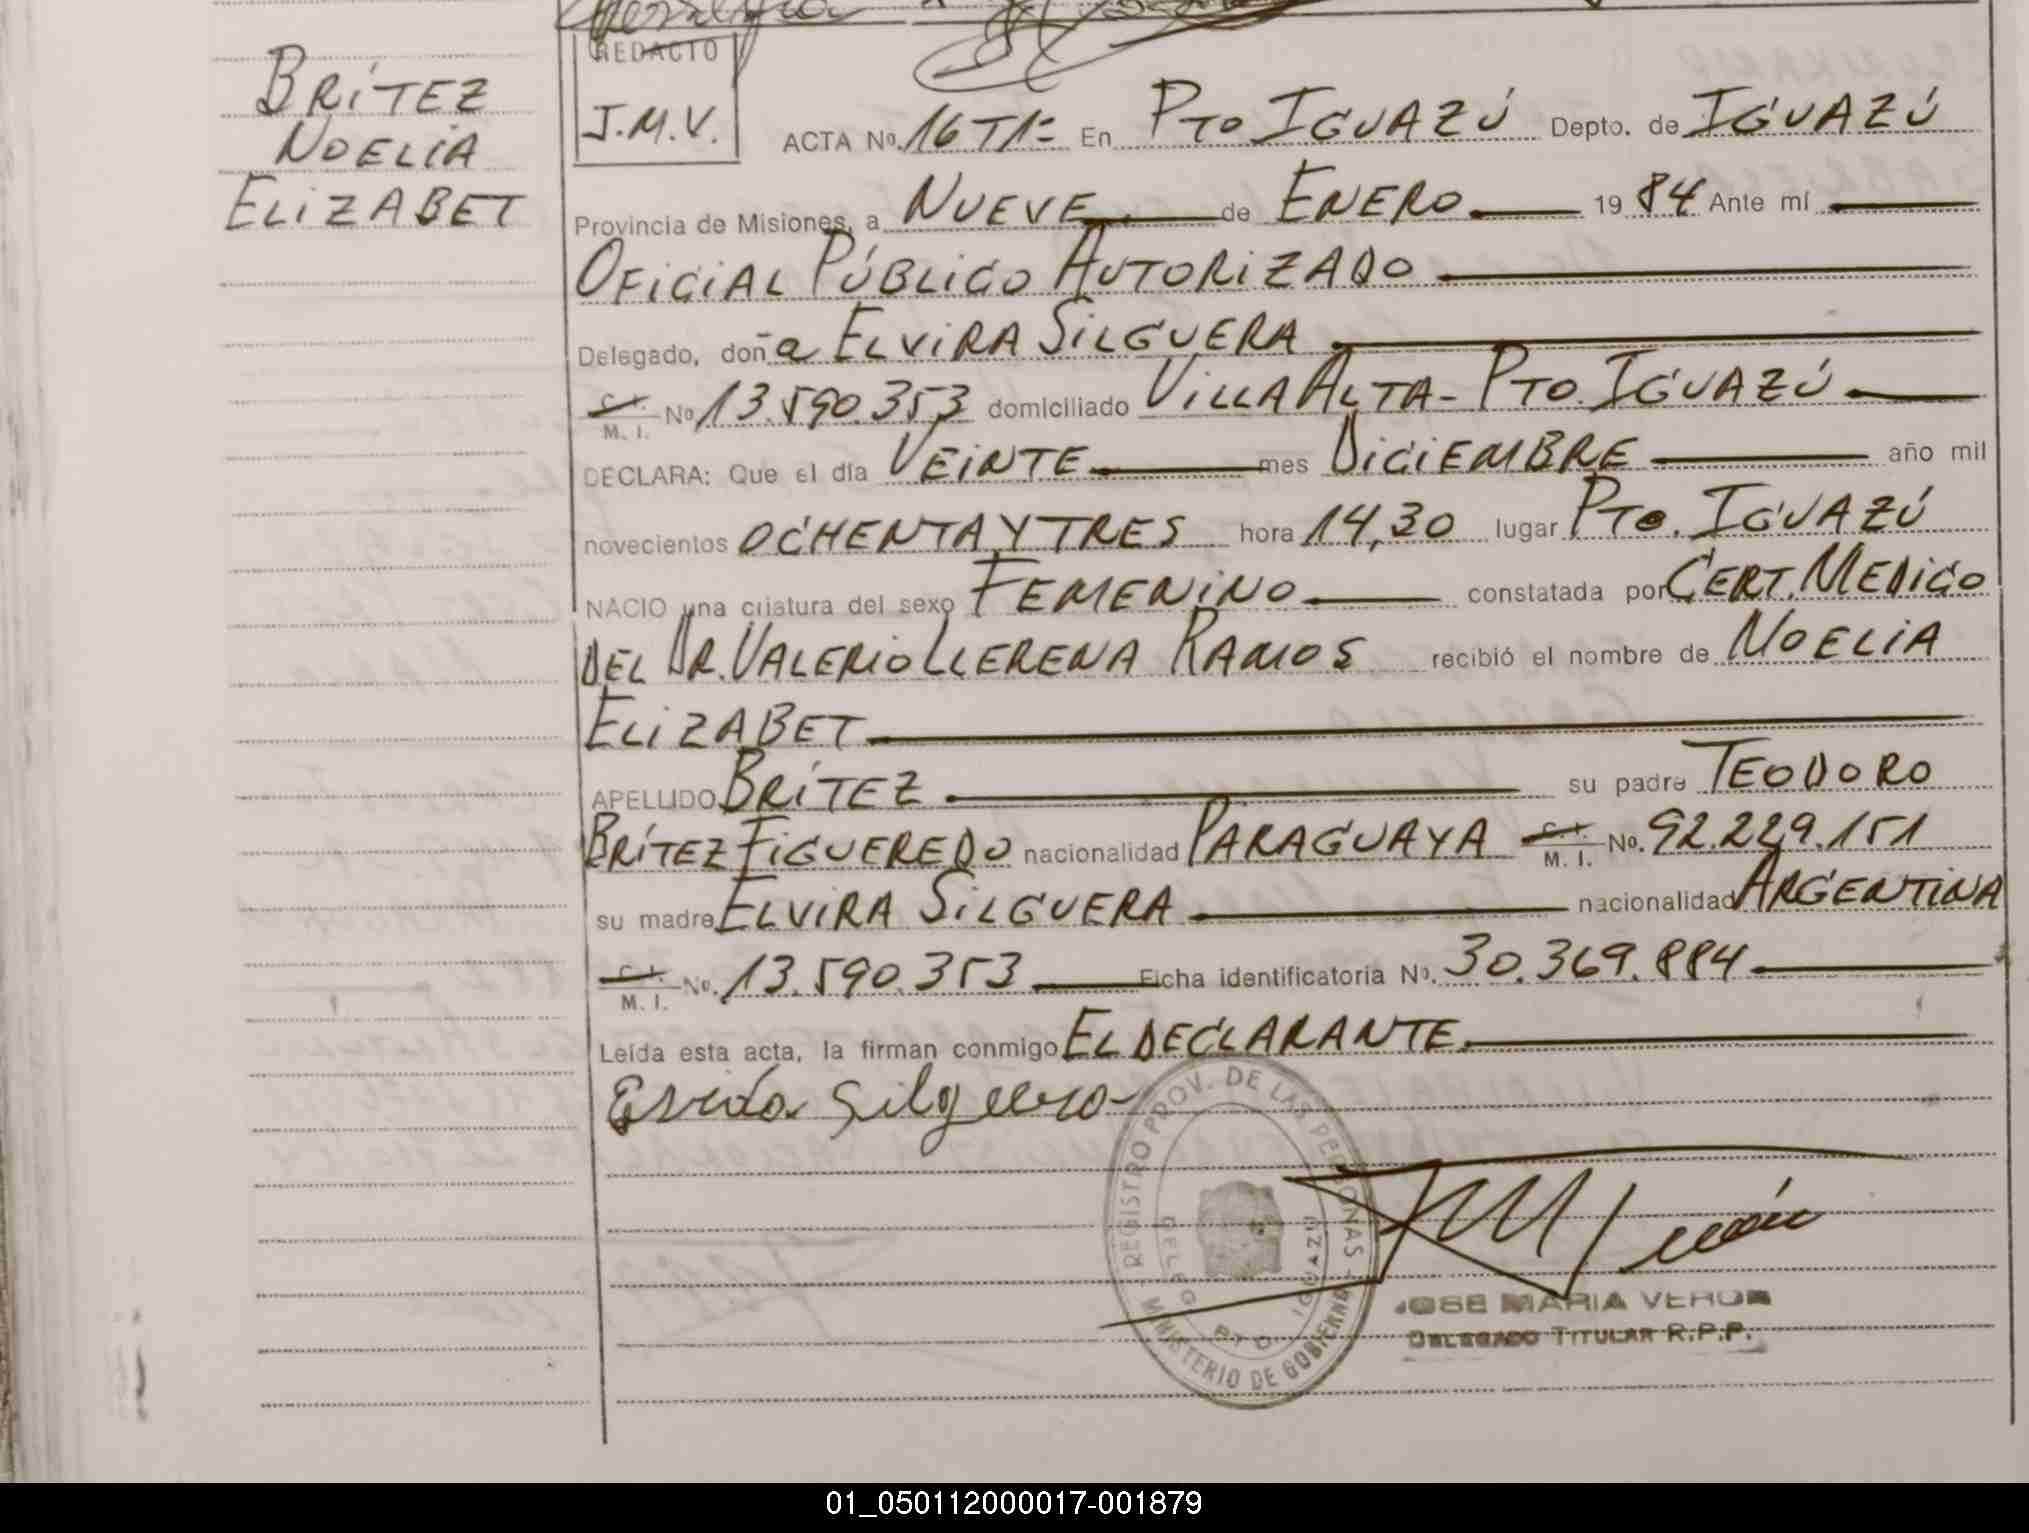 BRÍTEZ
NOELIA
ELIZABET
REDACTO
J.M.V.
ACTA Nº. 16 T1º En PTO IGUAZÚ Depto. de IGUAZÚ
Provincia de Misiones, a NUEVE de ENERO 1984 Ante mí
OFICIAL PÚBLICO AUTORIZADO
Delegado, doña ELVIRA SILGUERA
C. I. M. I. Nº 13.590.353 domiciliado VILLA ALTA - PTO. IGUAZÚ
DECLARA: Que el día VEINTE mes DICIEMBRE año mil
novecientos OCHENTA Y TRES hora 14,30 lugar PTO. IGUAZÚ
NACIO una criatura del sexo FEMENINO constatada por CERT. MEDICO
DEL DR. VALERIO LLERENA RAMOS recibió el nombre de NOELIA
ELIZABET
APELLIDO BRÍTEZ su padre TEODORO
BRÍTEZ FIGUEREDO nacionalidad PARAGUAYA C. I. M. I. Nº. 92.229.151
su madre ELVIRA SILGUERA nacionalidad ARGENTINA
C. I. M. I. Nº. 13.590.353 Ficha identificatoria Nº. 30.369.884
Leída esta acta, la firman conmigo EL DECLARANTE.
Silguera
REGISTRO PROV. DE LAS PERSONAS - MINISTERIO DE GOBIERNO -
DELEG. PTO. IGUAZU
JOSE MARIA VERON
DELEGADO TITULAR R.P.P.
01_050112000017-001879